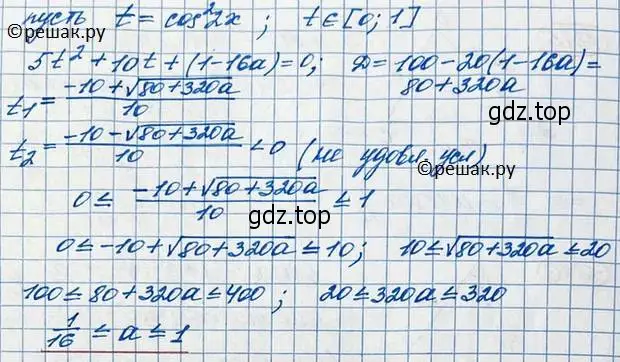 пусть t = cos²2x ; t ∈ [0; 1]
©решак.ру
5t² + 10t + (1-16a) = 0; D = 100 - 20(1-16a) =
80 + 320a
t₁ = (-10 + √(80+320a))/10
gdz.top
t₂ = (-10 - √(80+320a))/10 < 0 (не удовл. усл)
©решак.ру
0 ≤ (-10 + √(80+320a))/10 ≤ 1
gdz.top
0 ≤ -10 + √(80+320a) ≤ 10; 10 ≤ √(80+320a) ≤ 20
100 ≤ 80 + 320a ≤ 400 ; 20 ≤ 320a ≤ 320
1/16 ≤ a ≤ 1